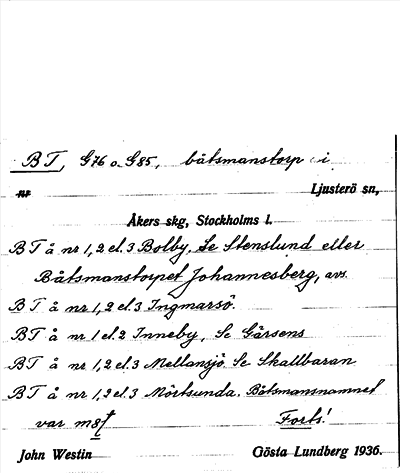 BT, G76 o. G85, båtsmanstorp i
nr Ljusterö sn,
Åkers skg, Stockholms l.
BT å nr 1, 2 el. 3 Bolby. Se Stenslund eller
Båtsmanstorpet Johannesberg, avs.
BT å nr 1, 2 el. 3 Ingmarsö.
BT å nr 1 el. 2 Inneby, Se Gärsens
BT å nr 1, 2 el. 3 Mellansjö. Se Skallbaran
BT å nr 1, 2 el. 3 Mörtsunda. Båtsmansnamnet
var Forts!
John Westin Gösta Lundberg 1936.